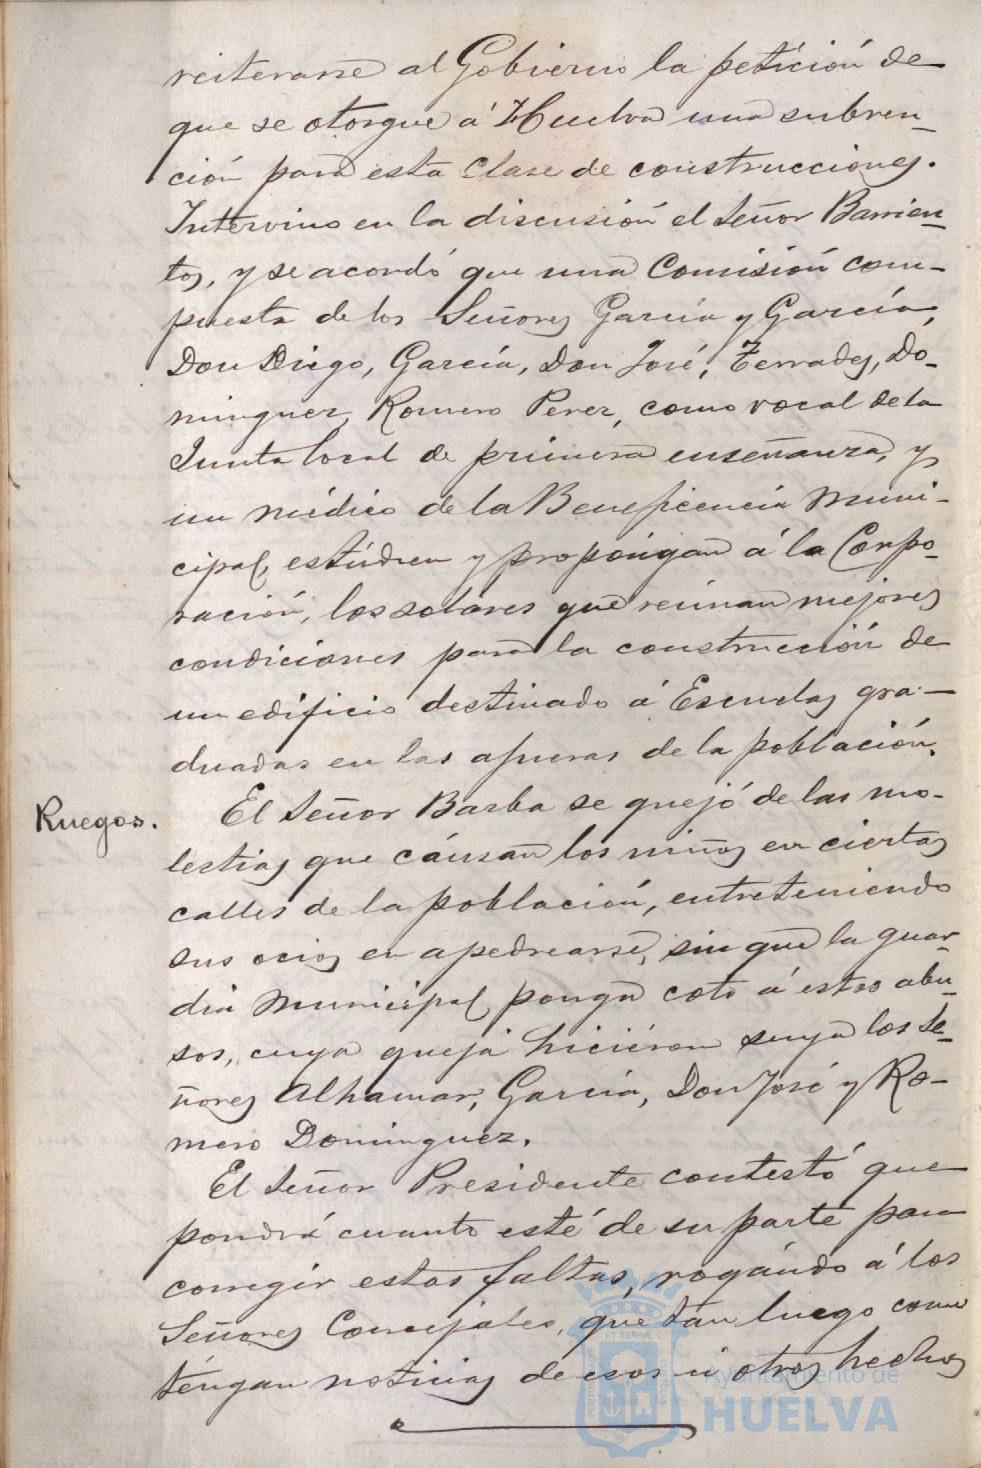 reiterarse al Gobierno la petición de
que se otorgue á Huelva una subven-
ción para esta clase de construcciones.
Intervino en la discusión el Señor Barrien-
tos, y se acordó que una Comisión com-
puesta de los Señores García y García,
Don Diego, García, Don José, Terrades, Do-
minguez, Romero Perez, como vocal de la
Junta local de primera enseñanza, y
un médico de la Beneficencia Muni-
cipal, estúdien y propóngan á la Corpo-
ración, los solares que reúnan mejores
condiciones para la construcción de
un edificio destinado á Escuelas gra-
duadas en las afueras de la población.
Ruegos. El Señor Barba se quejó de las mo-
lestias que cáusan los niños en ciertas
calles de la población, entreteniendo
sus ocios en apedrearse, sin que la guar-
dia Municipal ponga coto á estos abu-
sos, cuya queja hiciéron suya los Se-
ñores Alhamar, García, Don José y Ro-
mero Dominguez.
El Señor Presidente contestó que
pondrá cuanto esté de su parte para
corregir estas faltas, rogándo á los
Señores Concejales, que tan luego como
téngan noticias de esos ú otros hechos
Ayuntamiento de
HUELVA